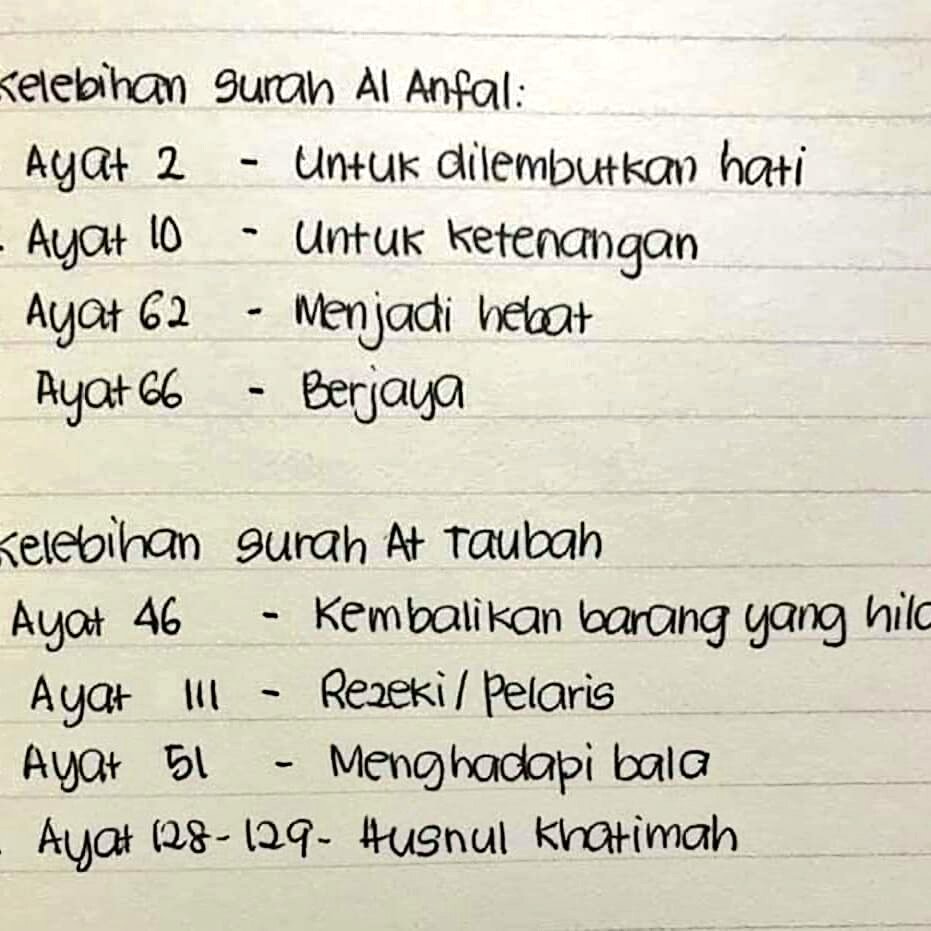 Kelebihan surah Al Anfal:
Ayat 2 - Untuk dilembutkan hati
Ayat 10 - Untuk ketenangan
Ayat 62 - Menjadi hebat
Ayat 66 - Berjaya
Kelebihan surah At Taubah
Ayat 46 - Kembalikan barang yang
Ayat 111 - Rezeki / Pelaris
Ayat 51 - Menghadapi bala
Ayat 128-129- Husnul Khatimah